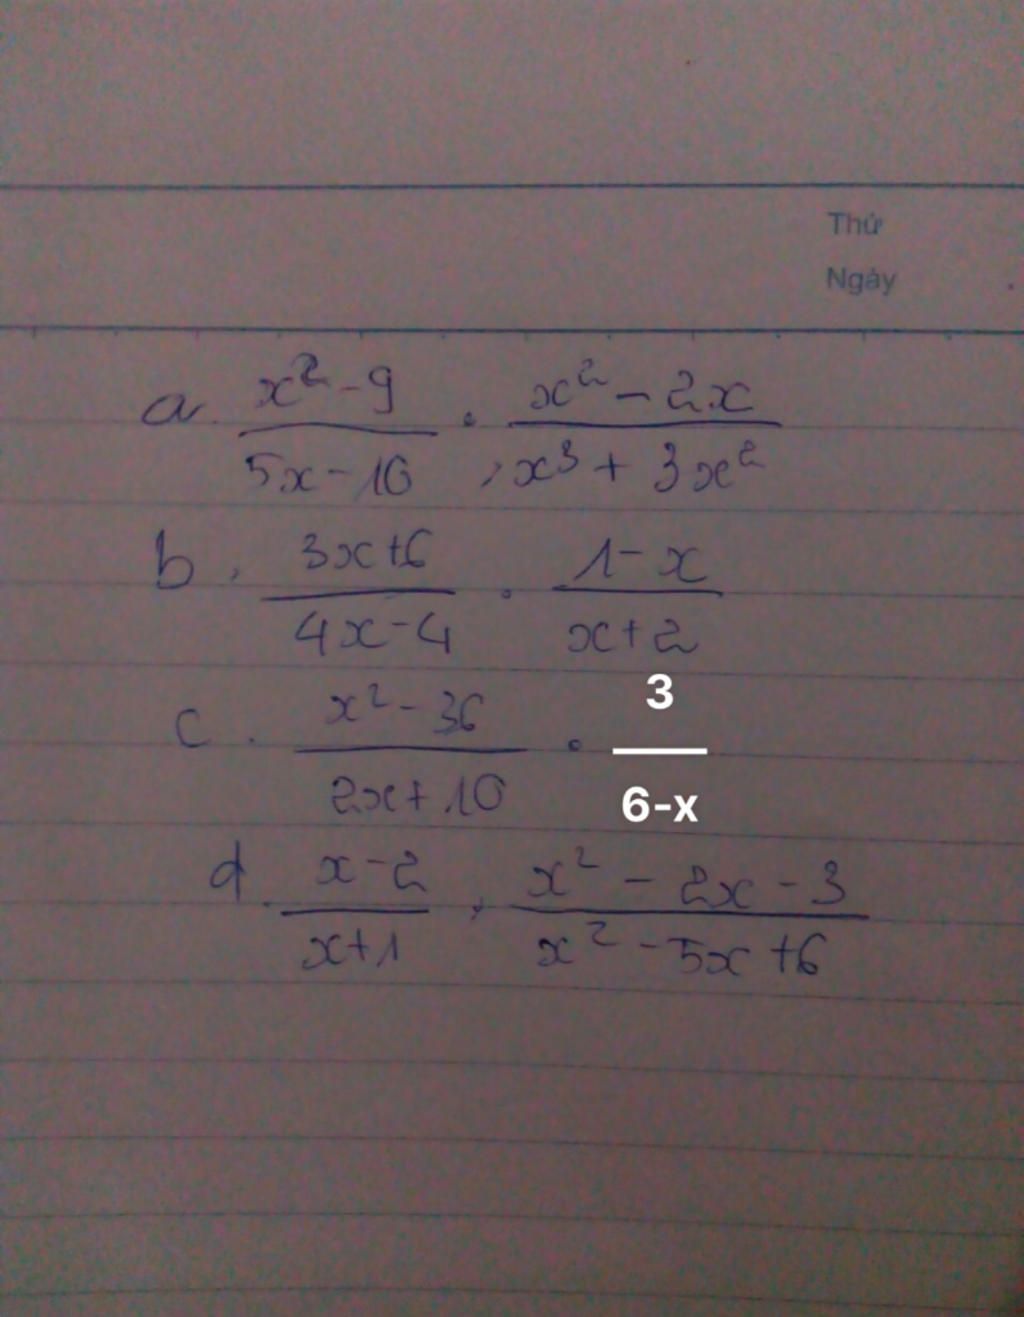 Thứ
Ngày
a. \frac{x^2-9}{5x-10} \cdot \frac{x^2-2x}{x^3+3x^2}
b. \frac{3x+6}{4x-4} \cdot \frac{1-x}{x+2}
c. \frac{x^2-36}{2x+10} \cdot \frac{3}{6-x}
d. \frac{x-2}{x+1} \cdot \frac{x^2-2x-3}{x^2-5x+6}